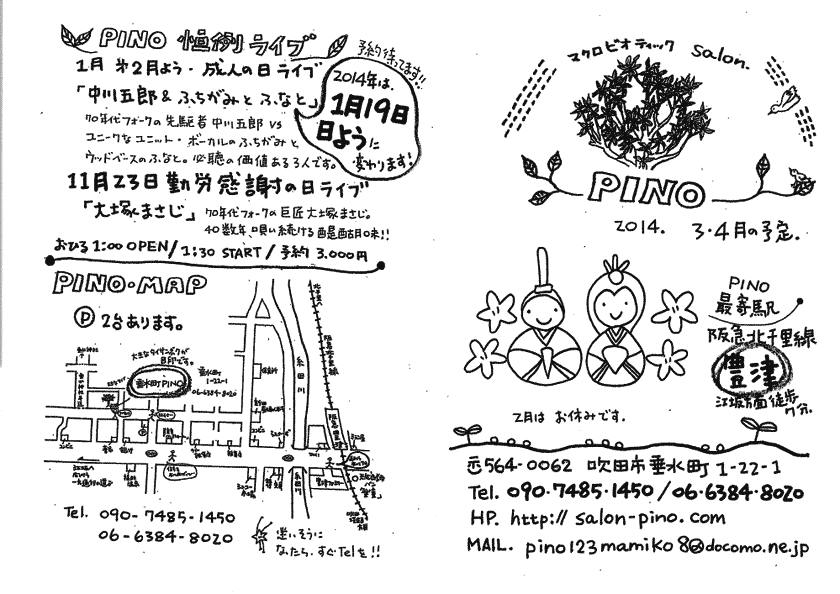 PINO 恒例ライブ
予約待ってます!!
1月 第2月よう・成人の日ライブ
「中川五郎 & ふちがみとふなと」
70年代フォークの先駆者 中川五郎 VS
ユニークなユニット・ボーカルのふちがみと
ウッドベースのふなと。必聴の価値ある3人です。
2014年は、
1月19日
日ように
変わります!
11月23日勤労感謝の日ライブ
「大塚まさじ」 70年代フォークの巨匠大塚まさじ。
40数年、唄い続ける醍醐味!!
おひる1:00 OPEN / 1:30 START / 予約 3.000円
PINO・MAP
P 2台あります。
垂水町PINO
垂水町
1-22-1
06-6384-8020
糸田川
Tel. 090-7485-1450
06-6384-8020
迷いそうに
なったら、すぐTelを!!
マクロビオティック salon.
PINO
2014. 3・4月の予定.
PINO
最寄駅
阪急北千里線
豊津
江坂方面徒歩
7分.
2月は お休みです.
〒564-0062 吹田市垂水町 1-22-1
Tel. 090・7485・1450 / 06・6384・8020
HP. http:// salon-pino.com
MAIL. pino123mamiko8@docomo.ne.jp